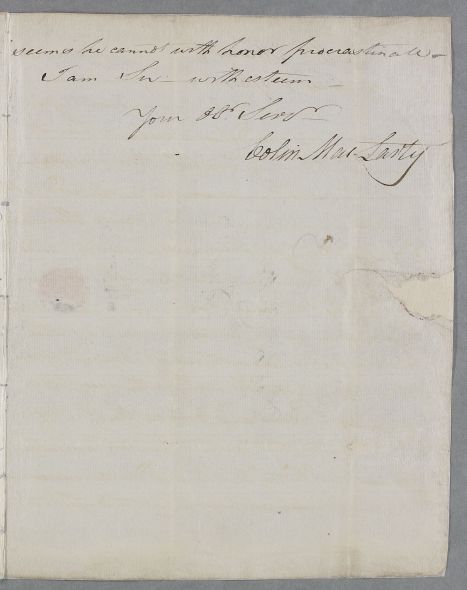 seems he cannot with honor procrastinate –
I am Sir – with esteem –
Your Obt Servt
Colin Mac Larty